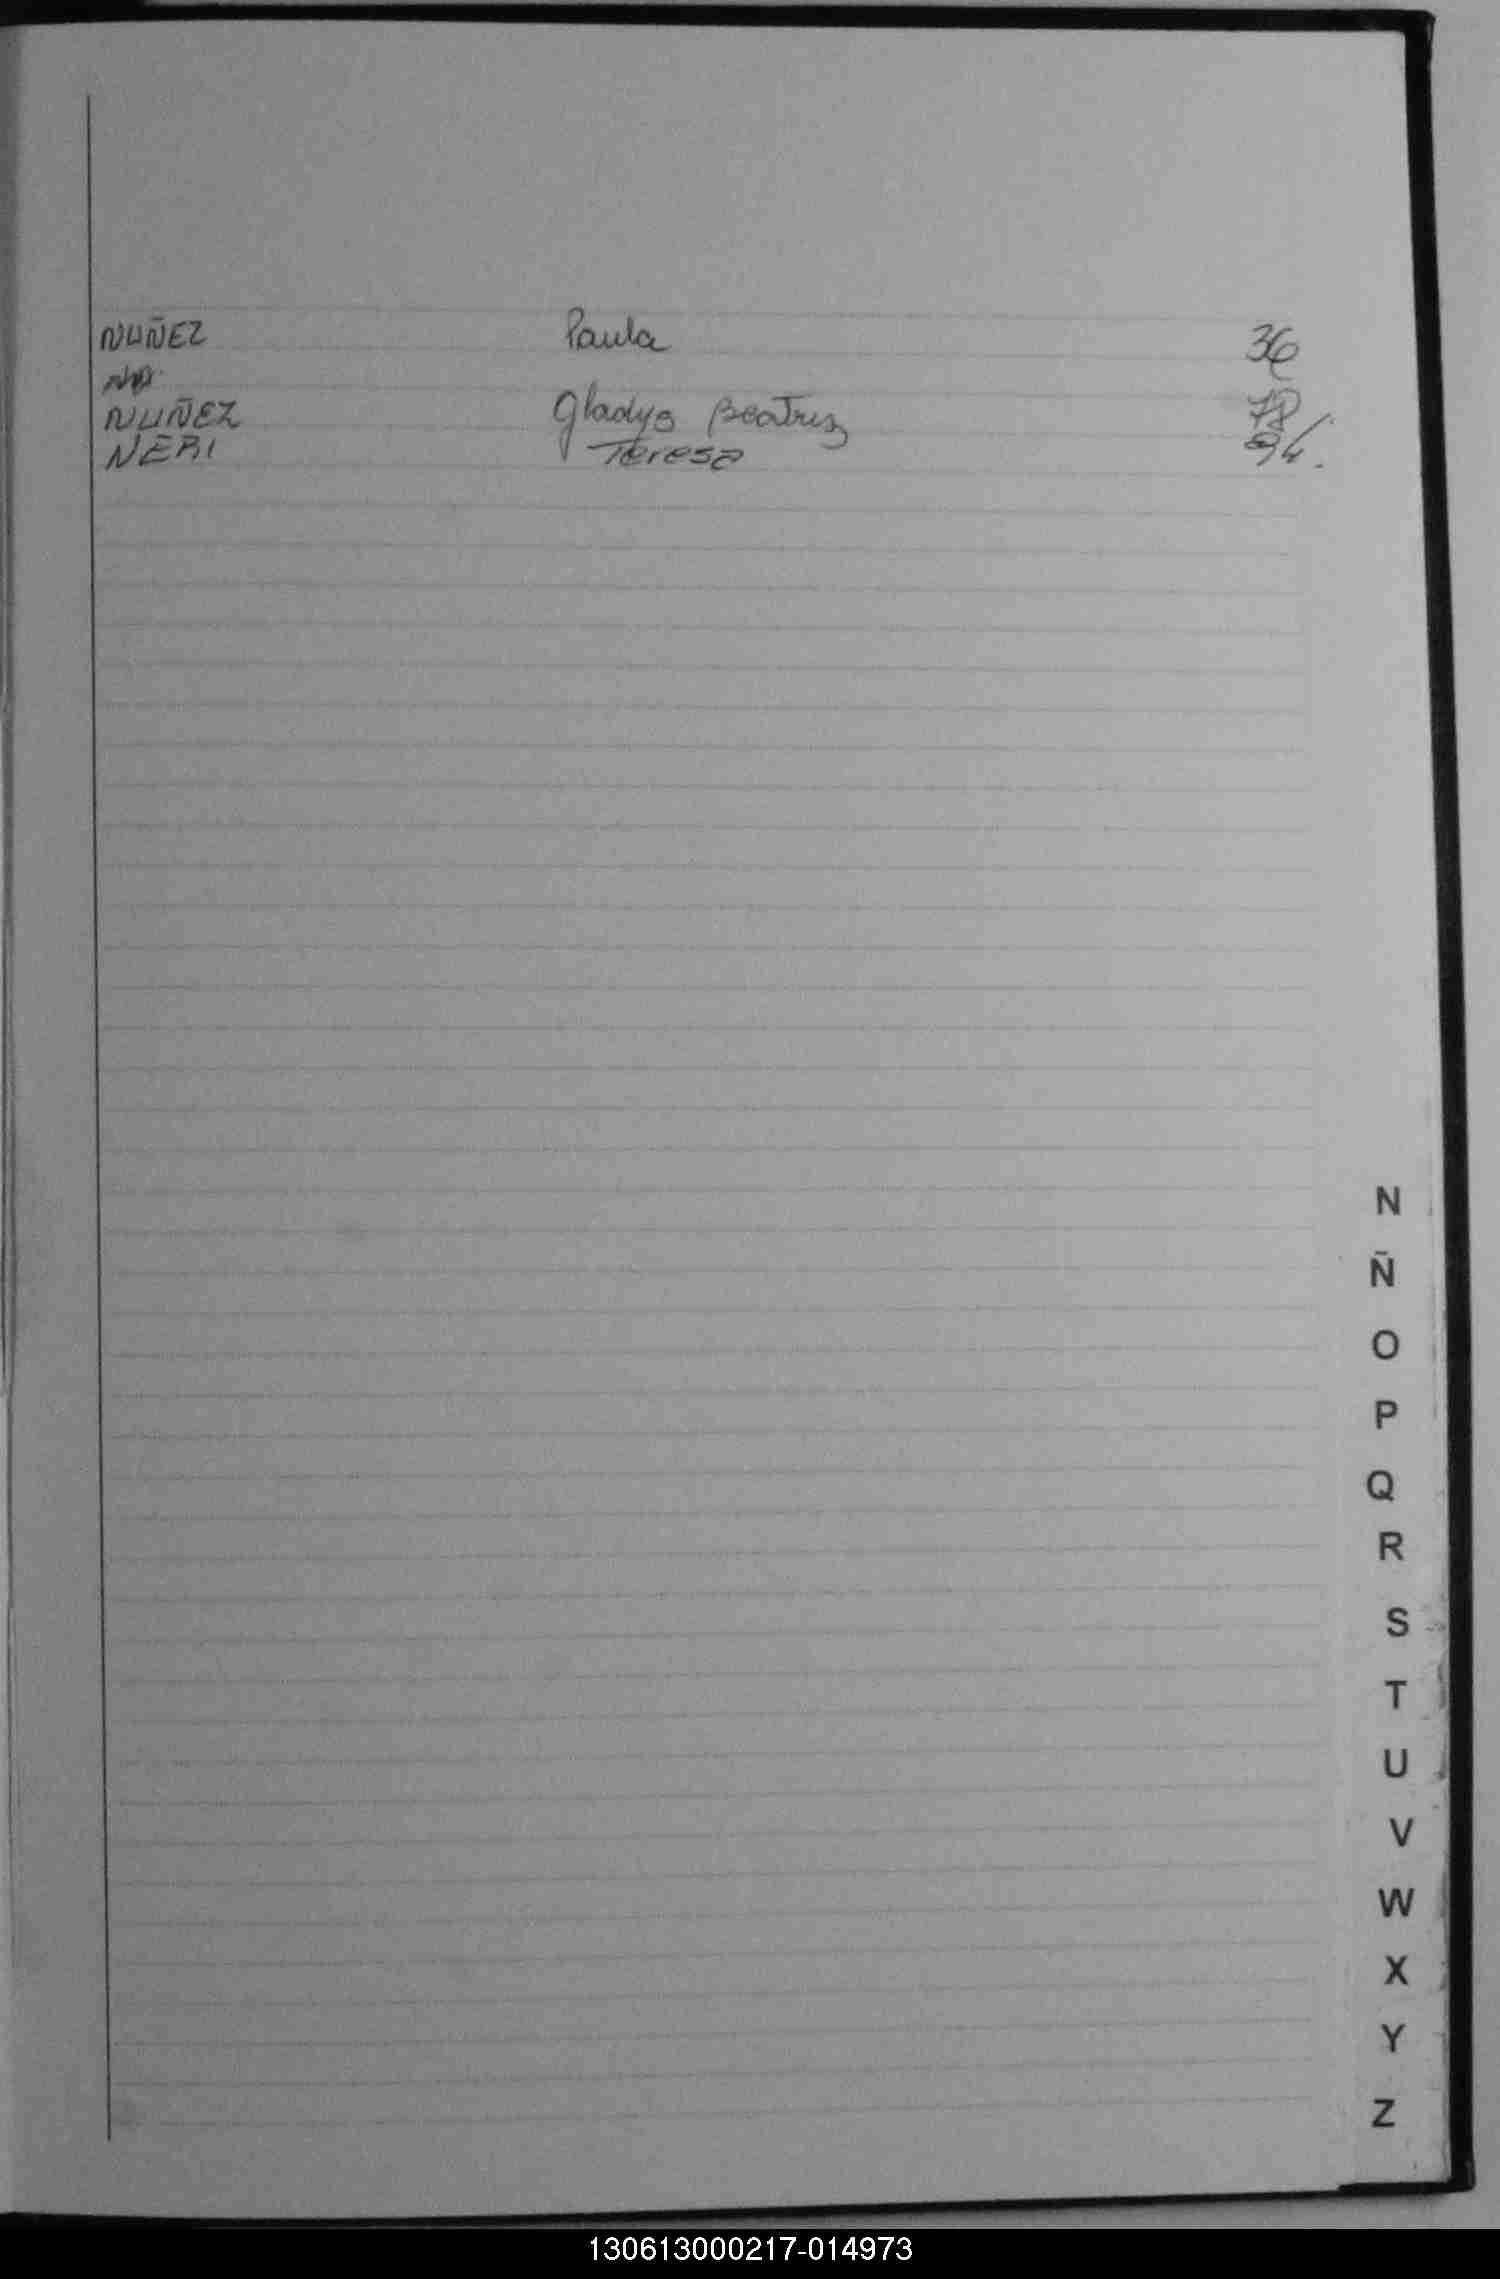 NUÑEZ Paula 36
NUÑEZ Gladys Beatriz 78
NERI Teresa 94.
N
Ñ
O
P
Q
R
S
T
U
V
W
X
Y
Z
130613000217-014973